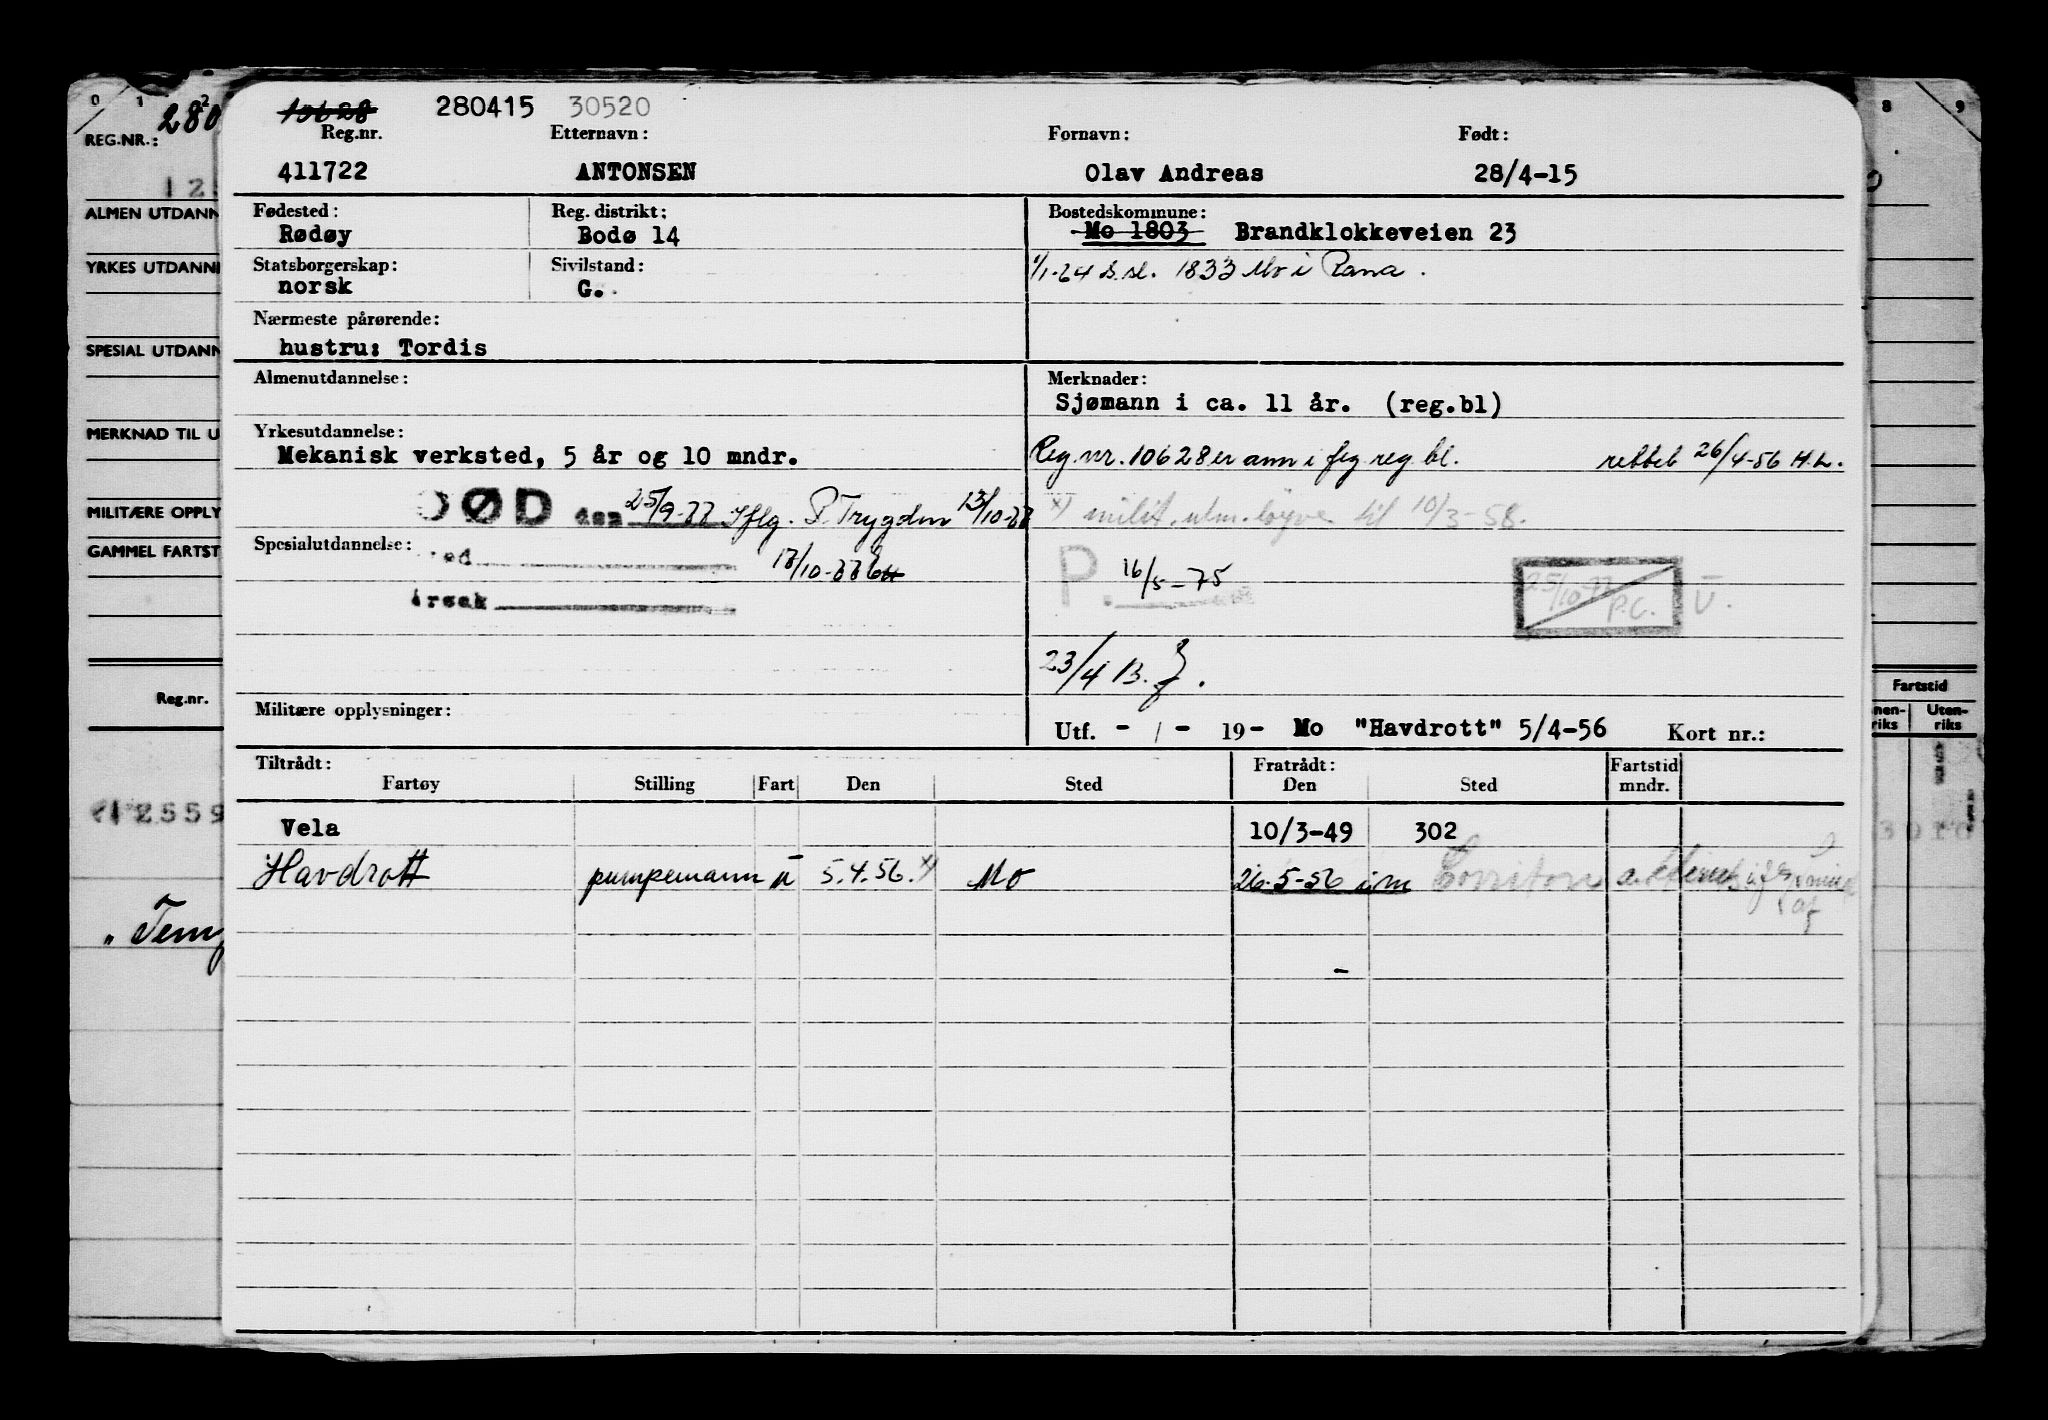 0 1 2 8 9
280
REG.NR.:
ALMEN UTDANN
YRKES UTDANN
SPESIAL UTDANN
MERKNAD TIL U
MILITÆRE OPPLY
GAMMEL FARTST
Reg.nr.
2559
" Tem
10628 280415 30520
Reg.nr. Etternavn: Fornavn: Født:
411722 ANTONSEN Olav Andreas 28/4-15
Fødested: Reg. distrikt: Bostedskommune:
Rødøy Bodø 14 Mo 1803 Brandklokkeveien 23
Statsborgerskap: Sivilstand: 1/1-64 s.sl. 1833 Mo i Rana.
norsk G.
Nærmeste pårørende:
hustru: Tordis
Almenutdannelse: Merknader:
Sjømann i ca. 11 år. (reg.bl)
Yrkesutdannelse:
Mekanisk verksted, 5 år og 10 mndr. Reg.nr. 10628 er ann i flg reg bl. rettet 26/4-56 H.L.
DØD den 25/9-77 Iflg. P. Trygden 13/10-77 x) milit. utm. løyve til 10/3-58.
Spesialutdannelse: 
ved 17/10-77 P. 16/5-75 25/10-77 P.C. U.
årsak
23/4 B.
Militære opplysninger:
Utf. - / - 19- Mo "Havdrott" 5/4-56 Kort nr.:
Tiltrådt: Fratrådt: Fartstid
Fartøy Stilling Fart Den Sted Den Sted mndr.
Vela 10/3-49 302
Havdrott pumpemann u 5.4.56. x) Mo 26-5-56 i.m
Fartstid
nen-riks Uten-riks